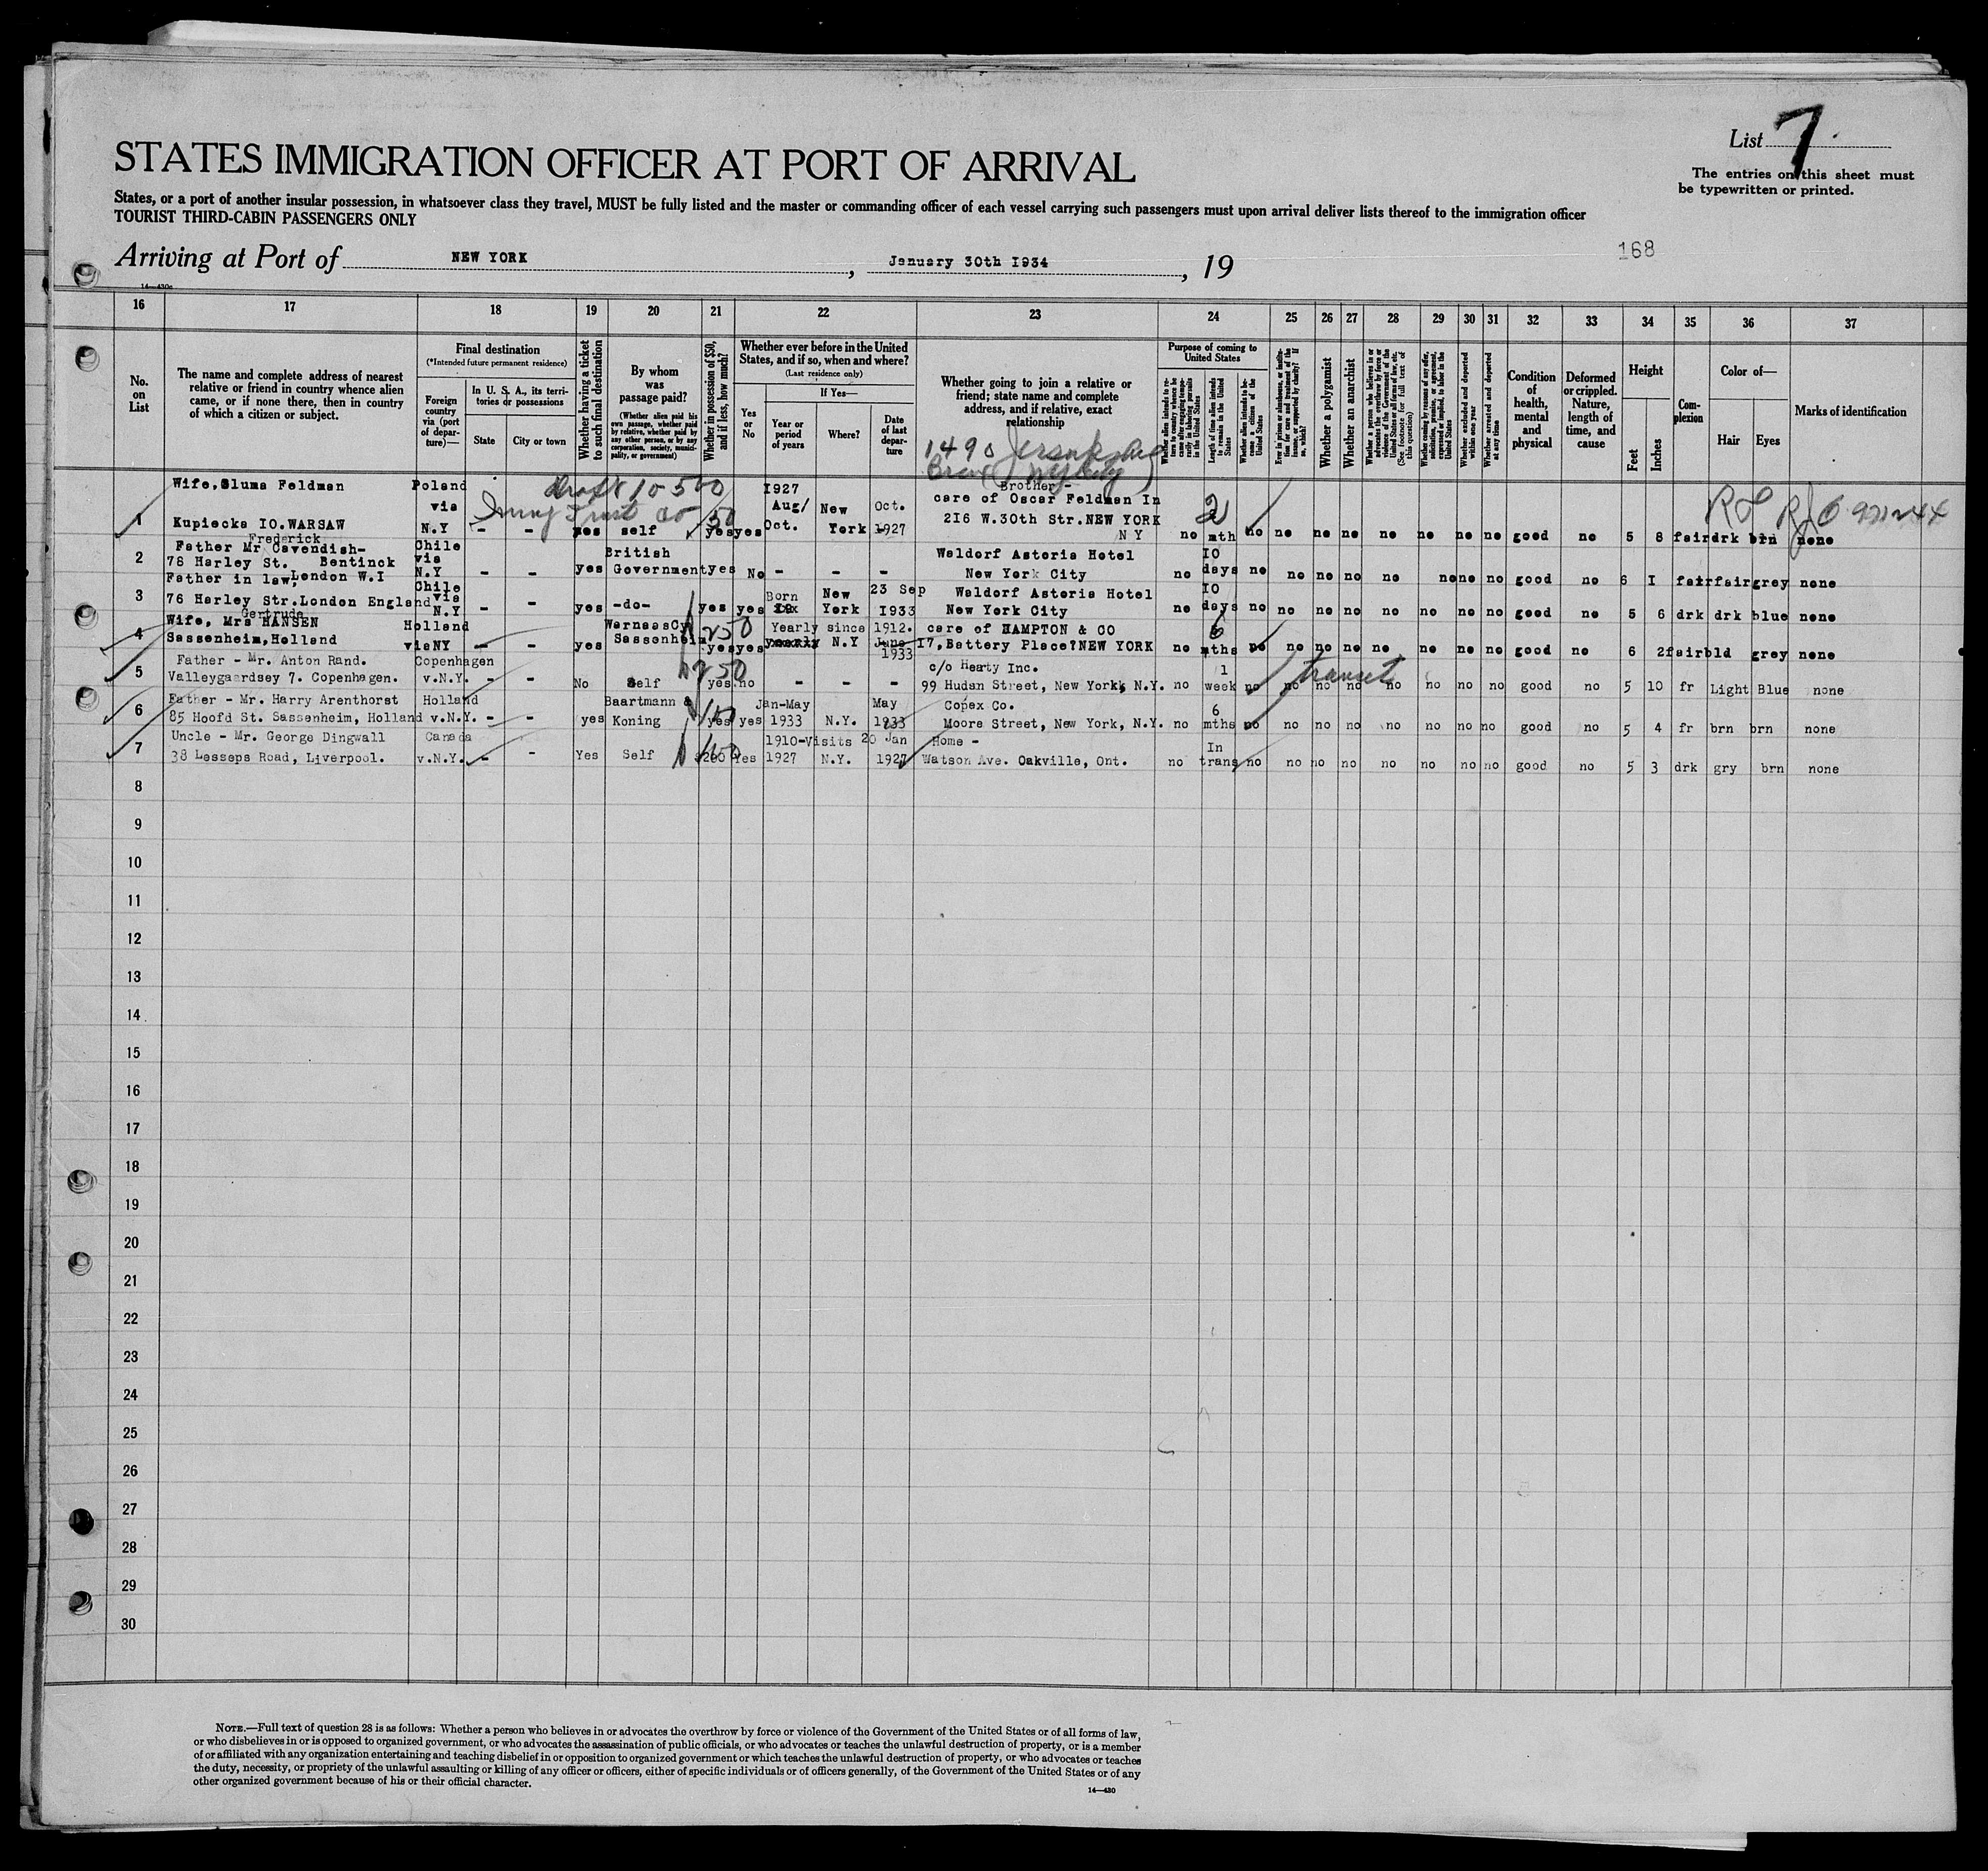 List 7
The entries on this sheet must
be typewritten or printed.
STATES IMMIGRATION OFFICER AT PORT OF ARRIVAL
States, or a port of another insular possession, in whatsoever class they travel, MUST be fully listed and the master or commanding officer of each vessel carrying such passengers must upon arrival deliver lists thereof to the immigration officer
TOURIST THIRD-CABIN PASSENGERS ONLY
168
Arriving at Port of NEW YORK, January 30th 1934, 19
14—430c
16 17 18 19 20 21 22 23 24 25 26 27 28 29 30 31 32 33 34 35 36 37
No. on List
The name and complete address of nearest
relative or friend in country whence alien
came, or if none there, then in country
of which a citizen or subject.
Final destination
(*Intended future permanent residence)
Foreign country via (port of departure)—
In U. S. A., its territories or possessions
State
City or town
Whether having a ticket to such final destination
By whom was passage paid?
(Whether alien paid his own passage, whether paid by relative, whether paid by any other person, or by any corporation, society, municipality, or government)
Whether in possession of $50, and if less, how much?
Whether ever before in the United States, and if so, when and where?
(Last residence only)
Yes or No
If Yes—
Year or period of years
Where?
Date of last departure
Whether going to join a relative or
friend; state name and complete
address, and if relative, exact
relationship
Purpose of coming to United States
Length of time alien intends to remain in the United States
Whether alien intends to become a citizen of the United States
Whether a polygamist
Whether an anarchist
Whether excluded and deported within one year
Whether arrested and deported at any time
Condition of health, mental and physical
Deformed or crippled. Nature, length of time, and cause
Height
Feet
Inches
Complexion
Color of—
Hair
Eyes
Marks of identification
1490
Draft 10500
Trust Co
1 Wife, Sluma Feldman Kupiecka IO. WARSAW Poland via N.Y - - yes self 50 yes yes 1927 Aug/Oct. New York Oct. 1927 Brother - care of Oscar Feldman In 216 W.30th Str. NEW YORK N Y no 2 mth no no no no no no no no good no 5 8 fair drk brn none
2 Father Mr Frederick Cavendish-Bentinck 76 Harley St. London W.I Chile via N.Y - - yes British Government yes No - - - Waldorf Astoria Hotel New York City no IO days no no no no no no no no good no 6 I fair fair grey none
3 Father in law, 76 Harley Str. London England Chile via N.Y - - yes -do- yes yes Born New York 23 Sep 1933 Waldorf Astoria Hotel New York City no IO days no no no no no no no no good no 5 6 drk drk blue none
4 Wife, Mrs Gertruda HANSEN Sassenheim, Holland Holland via NY - - yes Warnaas Cy Sassenheim 250 yes yes Yearly since 1912. yearly N.Y June 1933 care of HAMPTON & CO 17, Battery Place? NEW YORK no 6 mths no no no no no no no no good no 6 2 fair bld grey none
5 Father - Mr. Anton Rand. Valleygaardsey 7. Copenhagen. Copenhagen v.N.Y. - - No Self 250 yes no - - - c/o Hearty Inc. 99 Hudsn Street, New York, N.Y. no 1 week no transit no no no no no no no good no 5 10 fr Light Blue none
6 Father - Mr. Harry Arenthorst 85 Hoofd St. Sassenheim, Holland Holland v.N.Y. - - yes Baartmann & Koning 100 yes yes Jan-May 1933 N.Y. May 1933 Copex Co. Moore Street, New York, N.Y. no 6 mths no no no no no no no no good no 5 4 fr brn brn none
7 Uncle - Mr. George Dingwall 38 Lesseps Road, Liverpool. Canada v.N.Y. - - Yes Self $200 Yes 1910-Visits 1927 N.Y. 20 Jan 1927 Home - Watson Ave. Oakville, Ont. no In trans no no no no no no no no good no 5 3 drk gry brn none
8
9
10
11
12
13
14
15
16
17
18
19
20
21
22
23
24
25
26
27
28
29
30
NOTE.—Full text of question 28 is as follows: Whether a person who believes in or advocates the overthrow by force or violence of the Government of the United States or of all forms of law,
or who disbelieves in or is opposed to organized government, or who advocates the assassination of public officials, or who advocates or teaches the unlawful destruction of property, or is a member
of or affiliated with any organization entertaining and teaching disbelief in or opposition to organized government or which teaches the unlawful destruction of property, or who advocates or teaches
the duty, necessity, or propriety of the unlawful assaulting or killing of any officer or officers, either of specific individuals or of officers generally, of the Government of the United States or of any
other organized government because of his or their official character.
14—430